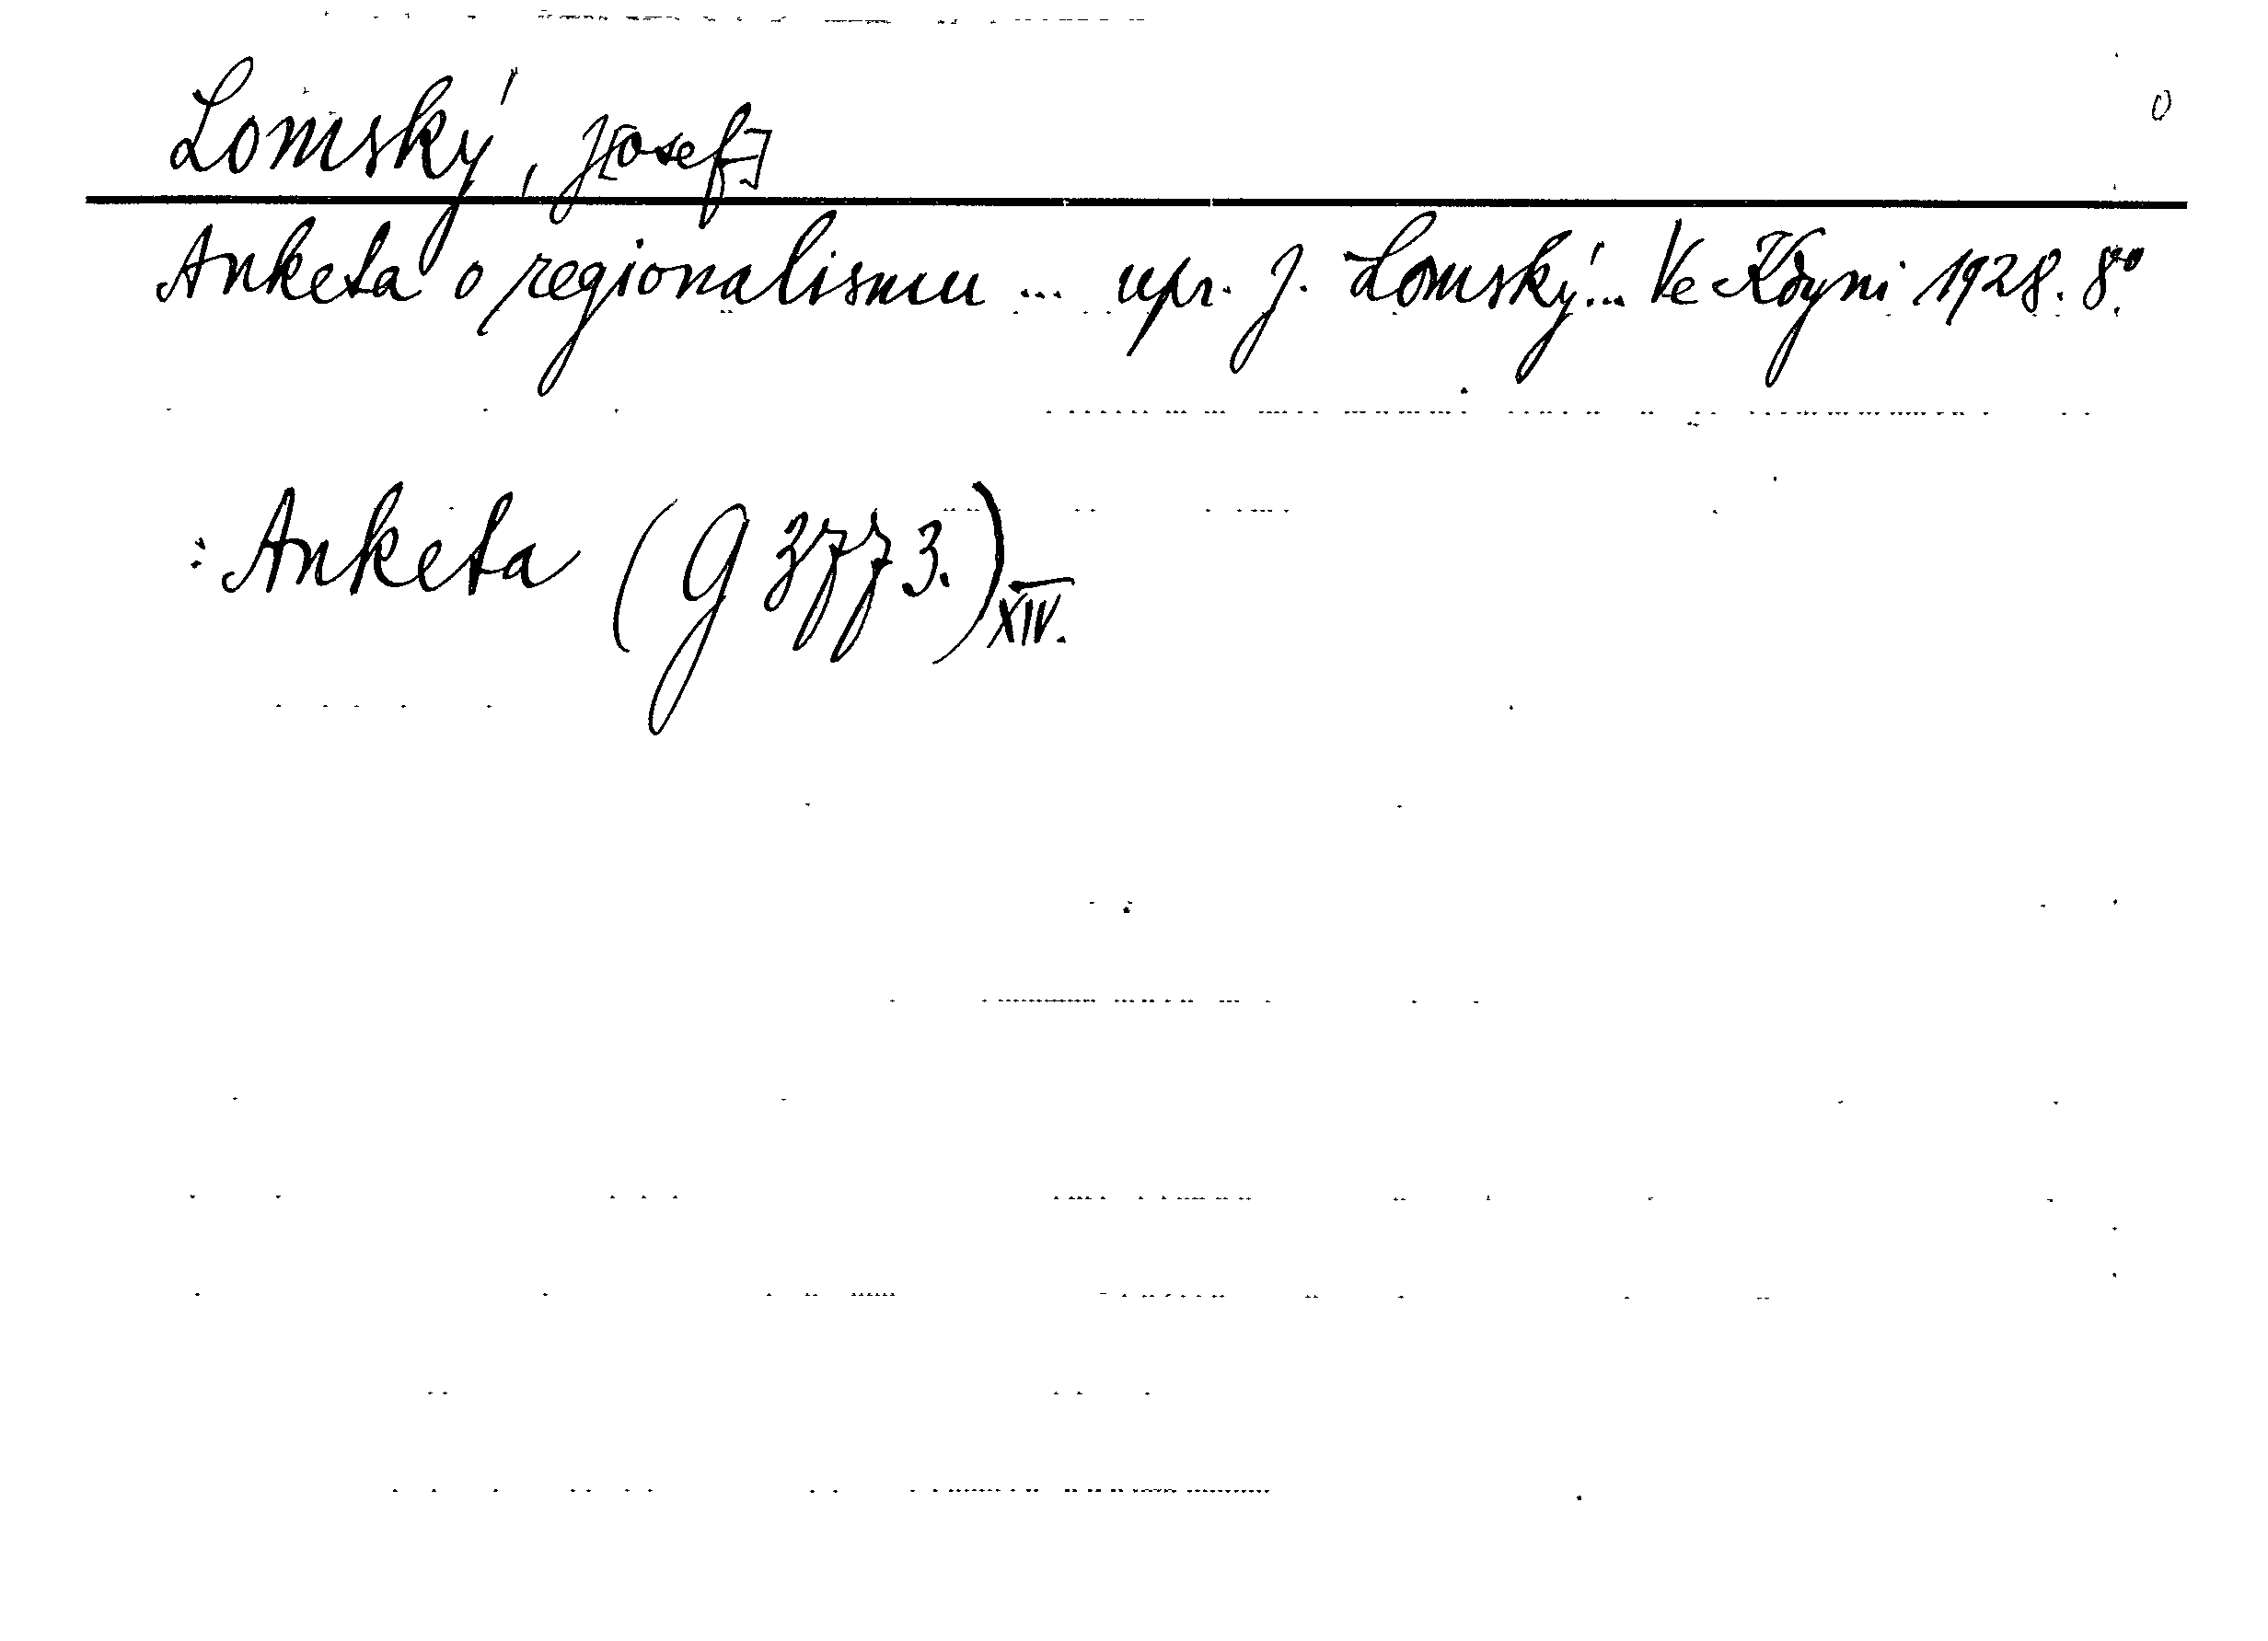 Lomský, J[osef]
Anketa o regionalismu ... upr. J. Lomský... Ve Kdyni 1928. 8°.
: Anketa (G 3773.) XIV.